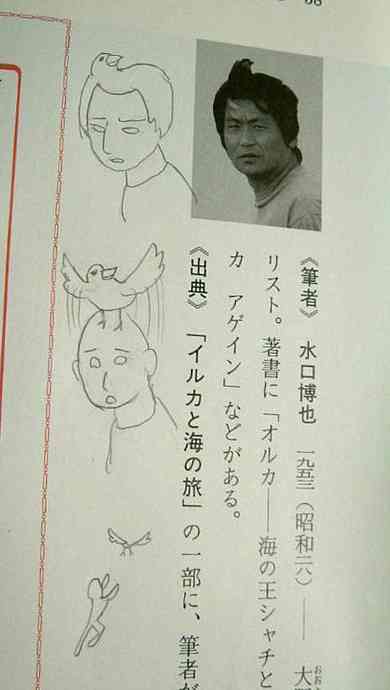 《筆者》 水口博也 一九五三(昭和二八)―― 大
リスト。著書に「オルカ――海の王シャチと
カ アゲイン」などがある。
《出典》 「イルカと海の旅」の一部に、筆者が